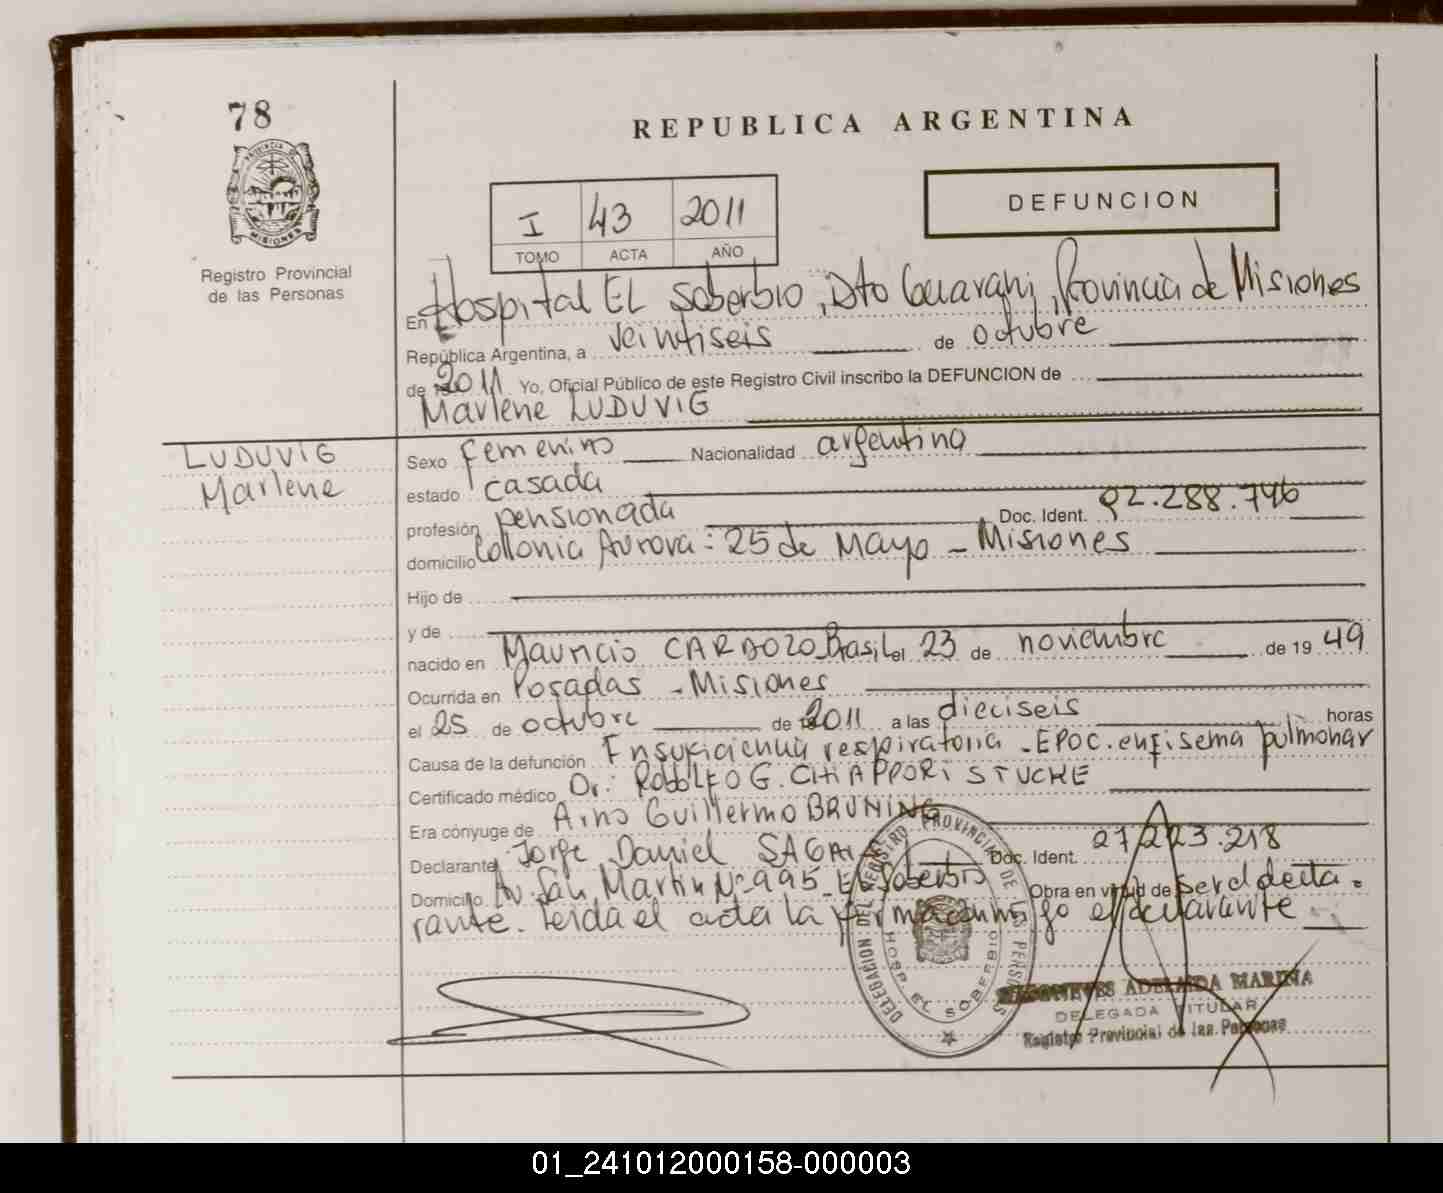 78
REPUBLICA ARGENTINA
PROVINCIA DE
MISIONES
Registro Provincial
de las Personas
I 43 2011
TOMO ACTA AÑO
DEFUNCION
En Hospital EL Soberbio, Dto Guarani, Provincia de Misiones
República Argentina, a veintiseis de octubre
de 2011 Yo, Oficial Público de este Registro Civil inscribo la DEFUNCION de
Marlene LUDUVIG
LUDUVIG
Marlene
Sexo femenino Nacionalidad argentina
estado casada
profesión pensionada Doc. Ident. 92.288.746
domicilio Collonia Aurora: 25 de Mayo - Misiones
Hijo de
y de
nacido en Mauricio CARDOZO-Brasil el 23 de noviembre de 1949
Ocurrida en Posadas - Misiones
el 25 de octubre de 2011 a las dieciseis horas
Causa de la defunción Insuficiencia respiratoria - EPOC. enfisema pulmonar
Certificado médico Dr: Rodolfo G. CHIAPPORI STUCKE
Era cónyuge de Arno Guillermo BRUNING
Declarante Jorge Daniel Doc. Ident. 27.223.218
Domicilio Av. San Martin Nº 995 - El Soberbio Obra en virtud de ser el decla-
rante. Leida el acta la firma conmigo el declarante
DELEGACION DEL REGISTRO PROVINCIAL DE LAS PERSONAS
HOSP. EL SOBERBIO
ADELAIDA MARINA
DELEGADA TITULAR
Registro Provincial de las Personas
01_241012000158-000003